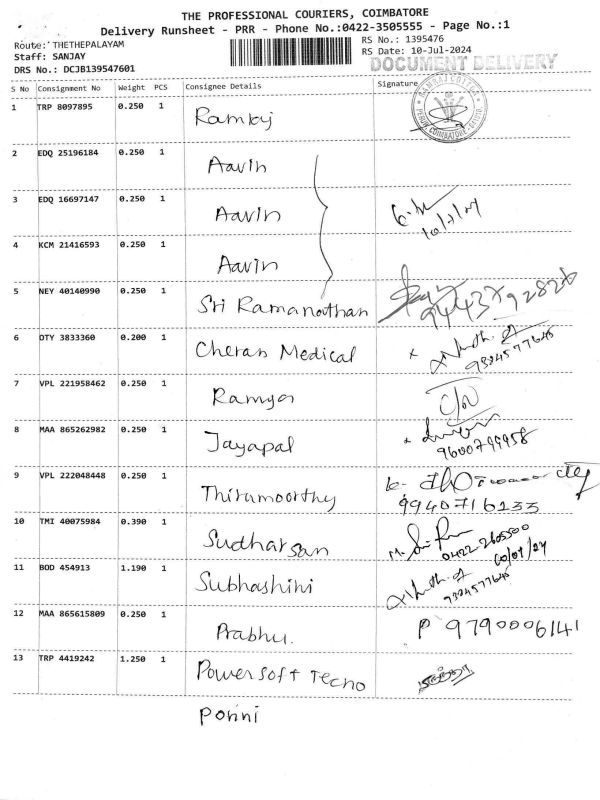 THE PROFESSIONAL COURIERS, COIMBATORE
Delivery Runsheet - PRR - Phone No.:0422-3505555 - Page No.:1
Route: THETHEPALAYAM
RS No.: 1395476
Staff: SANJAY
RS Date: 10-Jul-2024
DRS No.: DCJB139547601
DOCUMENT DELIVERY
S No Consignment No Weight PCS Consignee Details Signature
1 TRP 8097895 0.250 1 Ramraj
2 EDQ 25196184 0.250 1 Aavin
3 EDQ 16697147 0.250 1 Aavin 10/7/24
4 KCM 21416593 0.250 1 Aavin
5 NEY 40140990 0.250 1 Sri Ramanathan
6 DTY 3833360 0.200 1 Cheran Medical
7 VPL 221958462 0.250 1 Ramya
8 MAA 865262982 0.250 1 Jayapal
9 VPL 222048448 0.250 1 Thirumoorthy 9940716133
10 TMI 40075984 0.390 1 Sudharsan 0422-2605500
11 BOD 454913 1.190 1 Subhashini
12 MAA 865615809 0.250 1 Prabhu. P 9790006141
13 TRP 4419242 1.250 1 Powersoft Tecno
Ponni